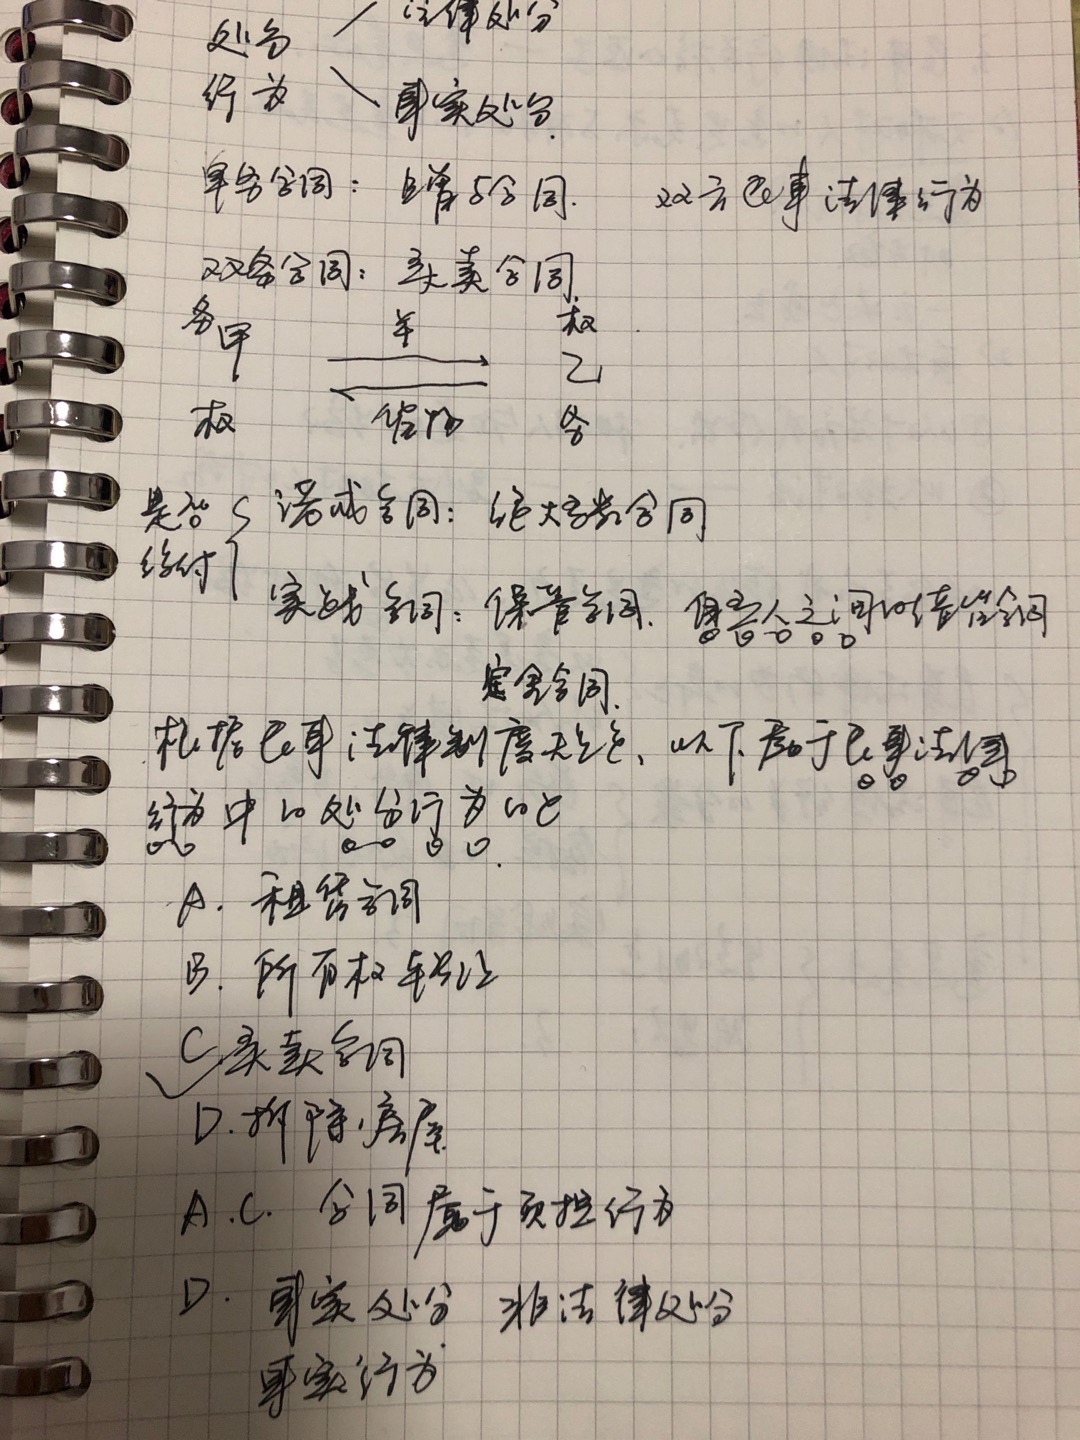 处分 法律处分
行为 事实处分
单务合同：赠与合同. 双方民事法律行为
双务合同：买卖合同.
务 甲 车 权
乙
权 借物 务
是否 诺成合同：绝大多数合同
给付
实践合同：保管合同. 自然人之间的借贷合同
定金合同.
根据民事法律制度规定、以下属于民事法律
行为中的处分行为的是
A. 租赁合同
B. 所有权转让
C. 买卖合同
D. 拆除房屋
A.C. 合同属于负担行为
D. 事实处分 非法律处分
事实行为